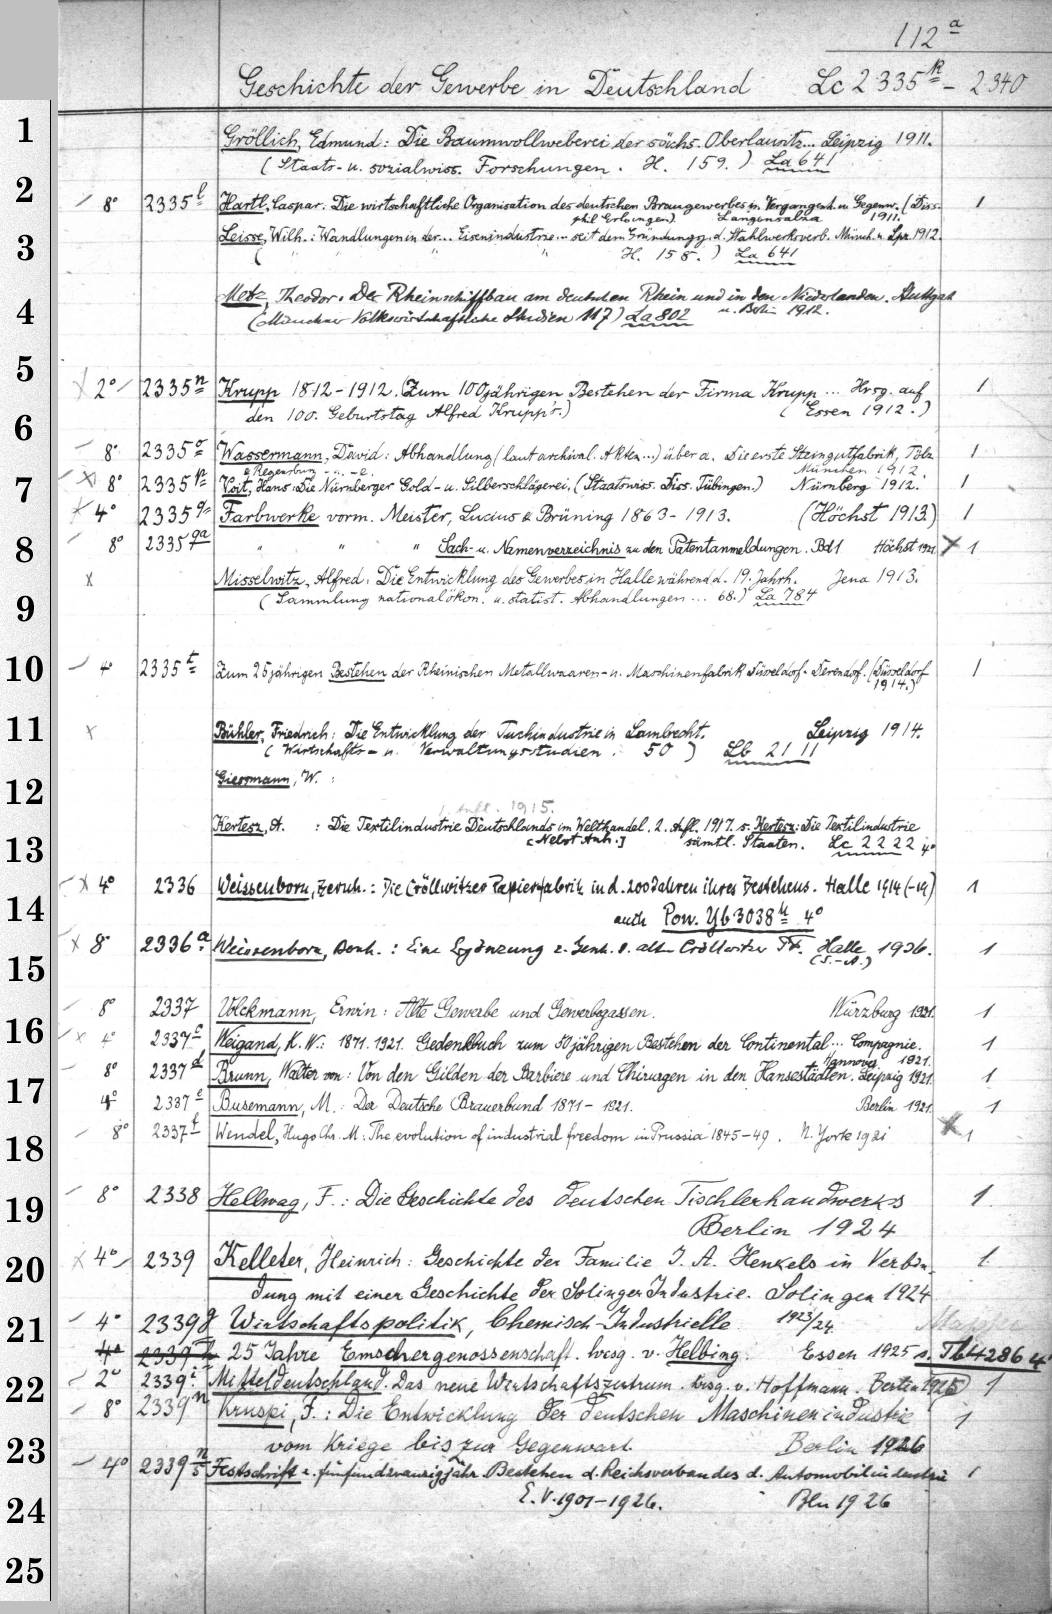 112 a
Geschichte der Gewerbe in Deutschland Lc 2335 k - 2340
1
Gröllich, Edmund: Die Baumwollweberei der sächs. Oberlausitz... Leipzig 1911.
(Staats- u. sozialwiss. Forschungen. H. 159.) La 641
2
8° 2335 l Hartl, Caspar: Die wirtschaftliche Organisation des deutschen Braugewerbes in Vergangenh. u. Gegenw. (Diss. 1
phil Erlangen) Langensalza 1911.
3
Leisse, Wilh.: Wandlungen in der... Eisenindustrie... seit dem Gründung d. Stahlwerksverb. Münch. u. Lpz. 1912.
( " " " " H. 158.) La 641
4
Metz, Theodor: Der Rheinschiffbau am deutschen Rhein und in den Niederlanden. Stuttgart
(Münchner Volkswirtschaftliche Studien 117) La 802 u. Berlin 1912.
5
x 2° 2335 n Krupp 1812-1912. (Zum 100jährigen Bestehen der Firma Krupp ... Hrsg. auf 1
den 100. Geburtstag Alfred Krupp's.) (Essen 1912.)
6
8° 2335 o Wassermann, David: Abhandlung (laut archival. Akten...) über a. Die erste Steingutfabrik, Tölz 1
Regensburg München 1912.
7
x 8° 2335 p Voit, Hans: Die Nürnberger Gold- u. Silberschlägerei. (Staatswiss. Diss. Tübingen.) Nürnberg 1912. 1
x 4° 2335 q Farbwerke vorm. Meister, Lucius & Brüning 1863-1913. (Höchst 1913.) 1
8
8° 2335 qa " " " Sach- u. Namenverzeichnis zu den Patentanmeldungen. Bd 1 Höchst 1921. x 1
x Misselwitz, Alfred: Die Entwicklung des Gewerbes in Halle während d. 19. Jahrh. Jena 1913.
(Sammlung nationalökon. u. statist. Abhandlungen ... 68.) La 784
9
10
4° 2335 t Zum 25jährigen Bestehen der Rheinischen Metallwaaren- u. Maschinenfabrik Düsseldorf-Derendorf. (Düsseldorf 1
1914.)
11
x Bühler, Friedrich: Die Entwicklung der Tuchindustrie in Lambrecht. Leipzig 1914.
(Wirtschafts- u. Verwaltungsstudien. 50) Lb 2111
Giessmann, W. :
12
1. Aufl. 1915.
Kertesz, A. : Die Textilindustrie Deutschlands im Welthandel. 2. Aufl. 1917. s. Kertesz: Die Textilindustrie
13
[Nebst Anh.] sämtl. Staaten. Lc 2222 4°
x 4° 2336 Weissenborn, Bernh.: Die Cröllwitzer Papierfabrik in d. 200 Jahren ihres Bestehens. Halle 1914 (-19) 1
14
auch Pow. Yb 3038 u 4°
x 8° 2336 a. Weissenborn, Bernh.: Eine Ergänzung z. Gesch. d. alten Cröllwitzer Halle 1936. 1
(S.-A.)
15
8° 2337 Volckmann, Erwin: Alte Gewerbe und Gewerbegassen. Würzburg 1921. 1
16
x 4° 2337 c Weigand, K. W.: 1871. 1921. Gedenkbuch zum 50jährigen Bestehen der Continental... Compagnie. 1
Hannover 1921.
8° 2337 d Brunn, Walter von: Von den Gilden der Barbiere und Chirurgen in den Hansestädten. Leipzig 1921. 1
17
4° 2337 e Busemann, M.: Der Deutsche Brauerbund 1871-1921. Berlin 1921. 1
8° 2337 f Wendel, Hugo Chr. M.: The evolution of industrial freedom in Prussia 1845-49. N. York 1921 x 1
18
19
8° 2338 Hellwag, F.: Die Geschichte des deutschen Tischlerhandwerks 1.
Berlin 1924
20
x 4° 2339 Kelleter, Heinrich: Geschichte der Familie J. A. Henkels in Verbin- 1.
dung mit einer Geschichte der Solinger Industrie. Solingen 1924
21
4° 2339 g Wirtschaftspolitik, Chemisch-Industrielle 1923/24
4° 2339 h 25 Jahre Emschergenossenschaft. hrsg. v. Helbing. Essen 1925 s. Tb 4286 4°
22
2° 2339 i Mitteldeutschland. Das neue Wirtschaftszentrum. hrsg. v. Hoffmann. Berlin 1925 1
8° 2339 n Kruspi, F.: Die Entwicklung der deutschen Maschinenindustrie 1
23
vom Kriege bis zur Gegenwart. Berlin 1926
4° 2339 n/5 Festschrift z. fünfundzwanzigjähr. Bestehen d. Reichsverbandes d. Automobilindustrie 1
24
E.V. 1901-1926. Bln 1926
25